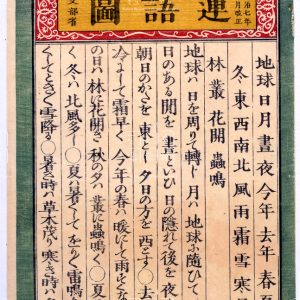 連語圖
治七年
月改正
文部省
地球日月晝夜今年去年春
冬東西南北風雨霜雪寒
林叢花開蟲鳴
地球ハ日を周りて轉し月ハ地球に隨ひて
日のある間を晝といひ日の隠れて後を夜
朝日のかたを東とし夕日の方を西とす○去
冷にして霜早く今年の春ハ暖にて雨
の日ハ林に花開き秋の夕ハ叢に蟲鳴く○
く冬ハ北風多し○夏ハ暑くしてをり〱雷鳴
くしてとき〲雪降る○暑き時ハ草木茂り寒き時ハ